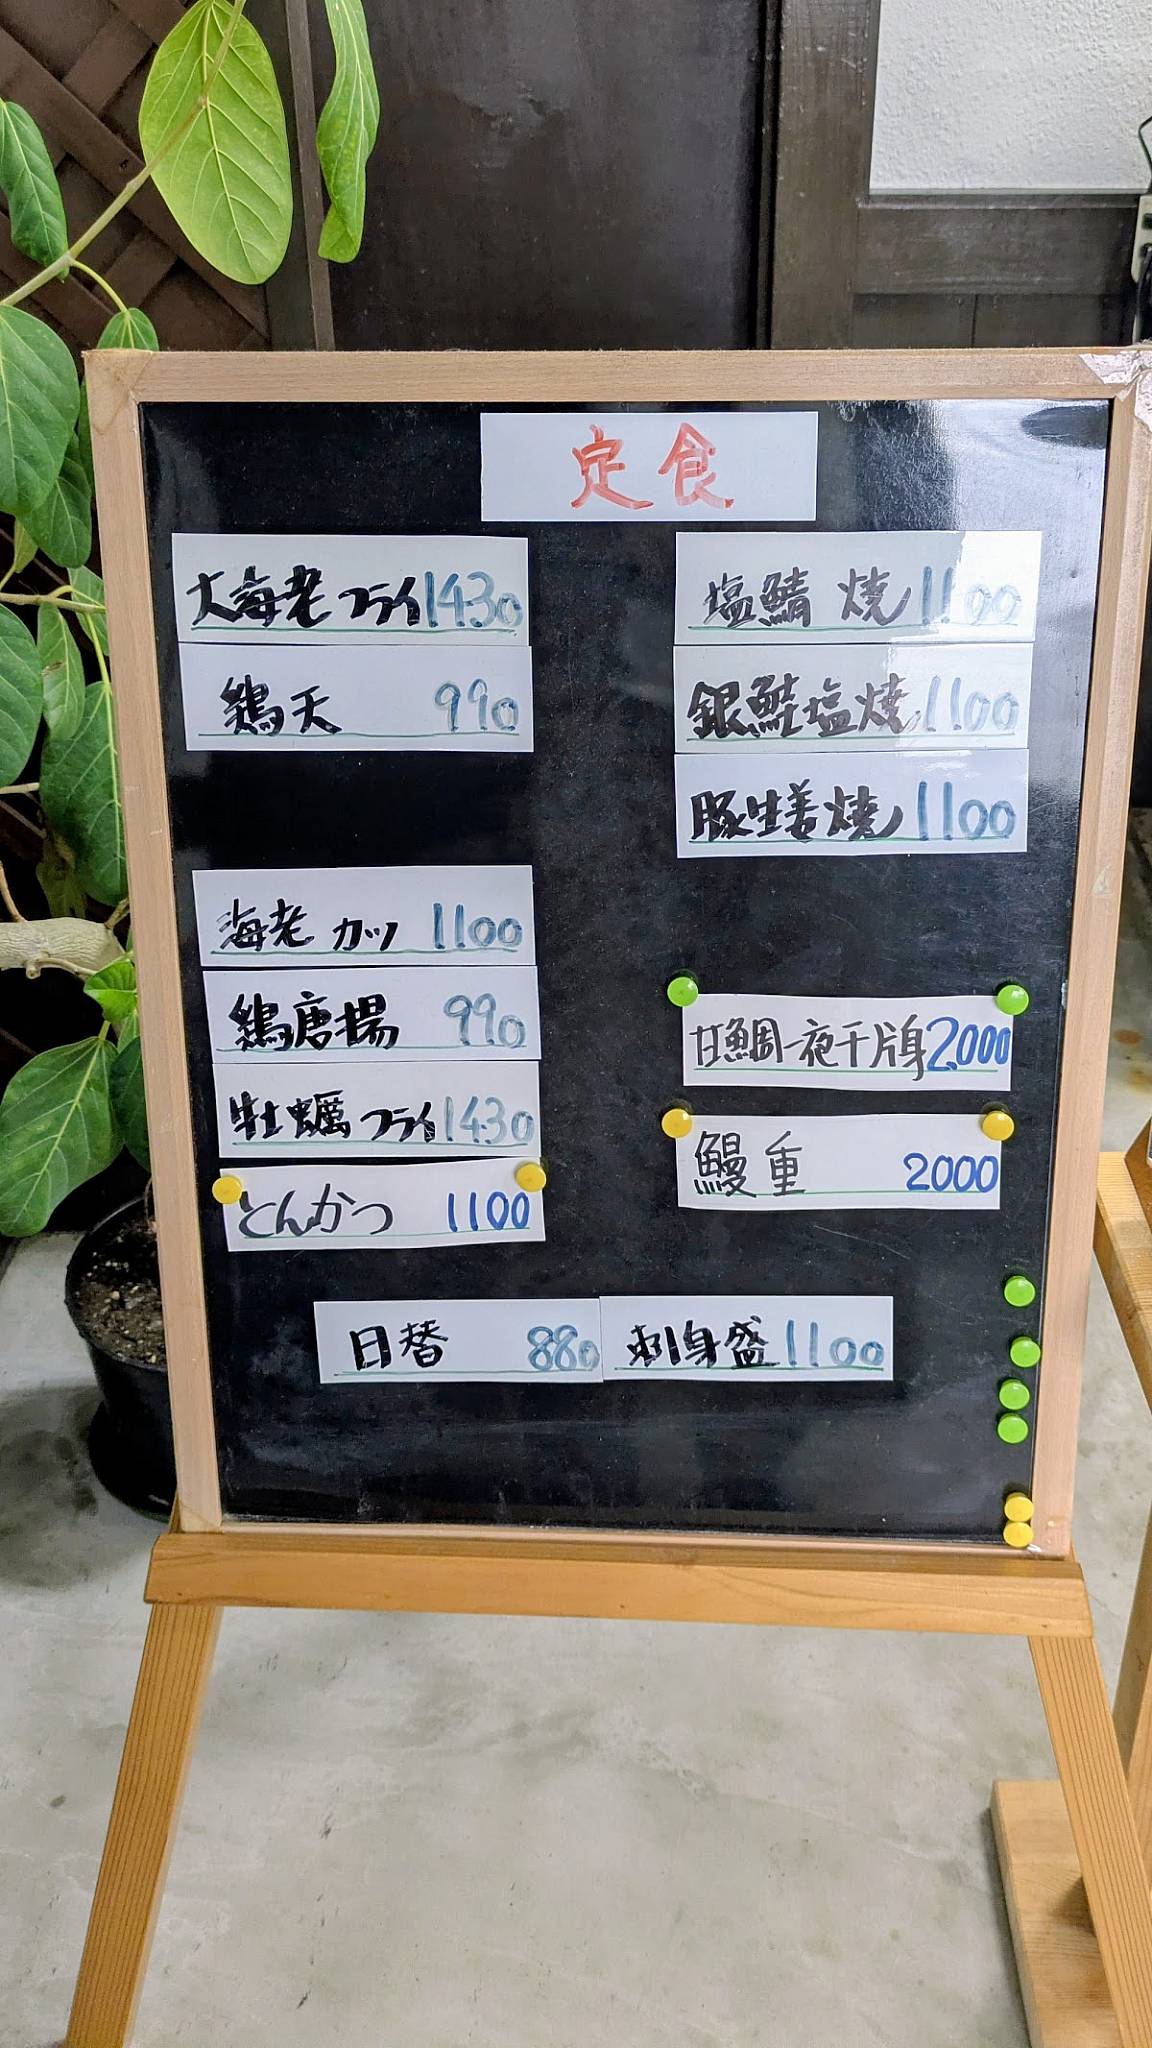 定食
大海老フライ1430
鶏天 990
海老カツ 1100
鶏唐揚 990
牡蠣フライ1430
とんかつ 1100
塩鯖焼1100
銀鮭塩焼1100
豚生姜焼1100
甘鯛一夜干片身2000
鰻重 2000
日替 880
刺身盛1100